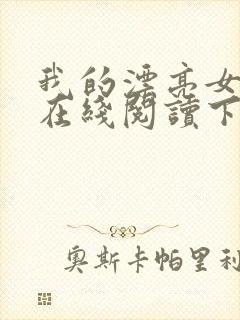 我的漂亮女
在綫閱讀下
奥斯卡帕里利